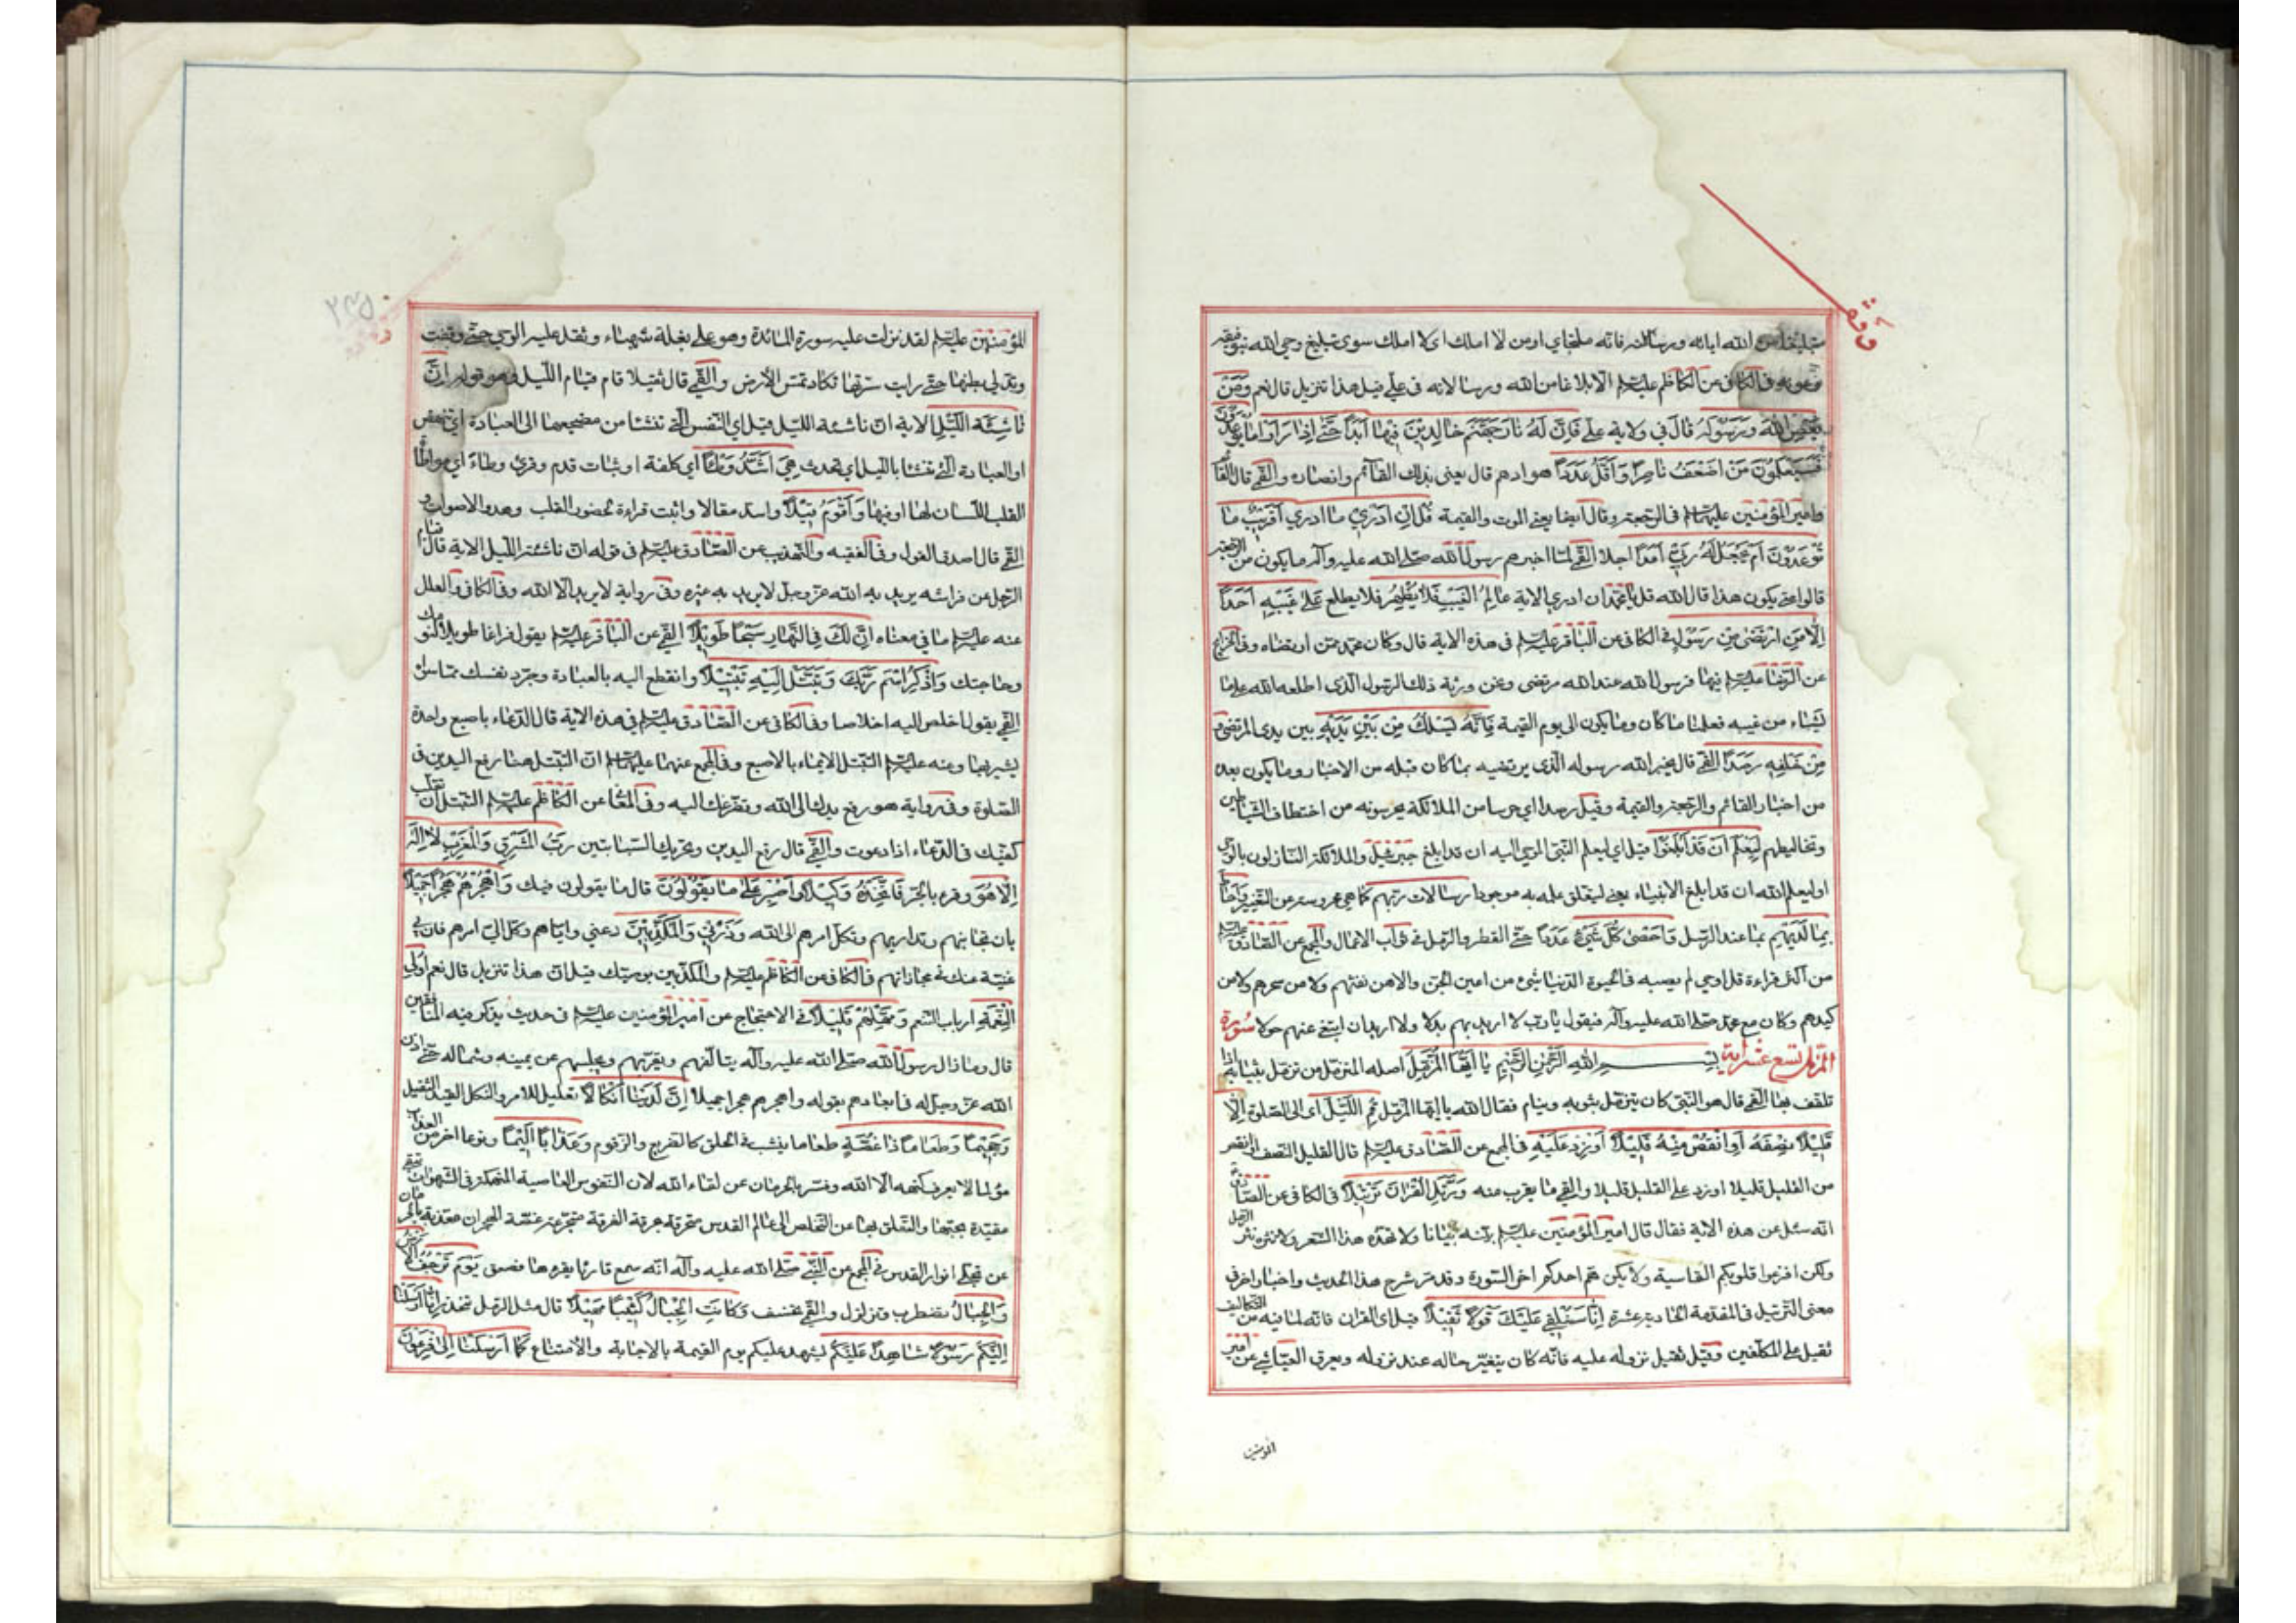 وقف
من الله اياته ورسالاته فانه ملتجاي او من لا املك اي لا املك سوى تبليغ وحي الله بتوفيقه
وعونه في الكافي عن الكاظم عليه السلم الا بلاغا من الله ورسالاته في علي قيل هذا تنزيل قال نعم وَمَنْ
يَعْصِ اللهَ وَرَسُولَهُ قال في ولاية علي فَاِنَّ لَهُ نَارَ جَهَنَّمَ خَالِدِينَ فِيهَا اَبَدًا حَتَّى اِذَا رَاَوا مَا يُوعَدُونَ
فَسَيَعْلَمُونَ مَنْ اَضْعَفُ نَاصِرًا وَاَقَلُّ عَدَدًا هو ام هم قال يعني بذلك القائم وانصاره والقمي قال القائم
وامير المؤمنين عليهما السلم في الرجعة وقال ايضا يعني الموت والقيمة قُلْ اِنْ اَدْرِي ما ادري اَقَرِيبٌ مَا
تُوعَدُونَ اَمْ يَجْعَلُ لَهُ رَبِّي اَمَدًا اجلا القمي لما اخبرهم رسول الله صلى الله عليه وآله ما يكون من الرجعة
قالوا متى يكون هذا قال الله قل يا محمد ان ادري الاية عَالِمُ الْغَيْبِ فَلَا يُظْهِرُ فلا يطلع عَلَى غَيْبِهِ اَحَدًا
اِلَّا مَنِ ارْتَضَى مِنْ رَسُولٍ في الكافي عن الباقر عليه السلم في هذه الاية قال وكان محمد ممن ارتضاه وفي الخرايج
عن الرضا عليه السلم فيها فرسول الله عند الله مرتضى ونحن ورثة ذلك الرسول الذي اطلعه الله على ما
يشاء من غيبه فعلمنا ما كان وما يكون الى يوم القيمة فَاِنَّهُ يَسْلُكُ مِنْ بَيْنِ يَدَيْهِ بين يدي المرتضى و
مِنْ خَلْفِهِ رَصَدًا القمي قال يخبر الله رسوله الذي يرتضيه بما كان قبله من الاخبار وما يكون بعده
من اخبار القائم والرجعة والقيمة وقيل رصدا اي حرسا من الملائكة يحرسونه من اختطاف الشياطين
وتخاليطهم لِيَعْلَمَ اَنْ قَدْ اَبْلَغُوا قيل اي ليعلم النبي الموحى اليه ان قد ابلغ جبرئيل والملائكة النازلون بالوحي
او ليعلم الله ان قد ابلغ الانبياء يعني ليتعلق علمه به موجودا رسالات ربهم كما هي محروسة عن التغيير وَاَحَاطَ
بِمَا لَدَيْهِمْ بما عند الرسل وَاَحْصَى كُلَّ شَيْءٍ عَدَدًا حتى القطر والرمل في ثواب الاعمال والمجمع عن الصادق عليه السلم
من اكثر قراءة قل اوحي لم يصبه في الحيوة الدنيا شيء من اعين الجن والا من نفثهم ولا من سحرهم ولا من
كيدهم وكان مع محمد صلى الله عليه وآله فيقول يا رب لا اريد بهم بدلا ولا اريد ان ابتغي عنهم حولا سورة
المزمل تسع عشر اية بِسْمِ اللهِ الرَّحْمنِ الرَّحِيمِ يَا اَيُّهَا الْمُزَّمِّلُ اصله المتزمل من تزمل بثيابه اذا
تلفف بها القمي قال هو النبي كان يتزمل بثوبه وينام فقال الله يا ايها المزمل قُمِ اللَّيْلَ اى الى الصلوة اِلَّا
قَلِيلًا نِصْفَهُ اَوِ انْقُصْ مِنْهُ قَلِيلًا اَوْ زِدْ عَلَيْهِ في المجمع عن الصادق عليه السلم قال القليل النصف او انقص
من القليل قليلا او زد على القليل قليلا والقمي ما يقرب منه وَرَتِّلِ الْقُرْانَ تَرْتِيلًا في الكافي عن الصادق
انه سئل عن هذه الاية فقال قال امير المؤمنين عليه السلم بينه بيانا ولا تهذه هذ الشعر ولا تنثره نثر الرمل
ولكن افزعوا قلوبكم القاسية ولا يكن هم احدكم اخر السورة وقد مر شرح هذا الحديث واخبار اخر في
معنى الترتيل في المقدمة الحادية عشرة اِنَّا سَنُلْقِي عَلَيْكَ قَوْلًا ثَقِيلًا قيل اى القران فانه لما فيه من التكاليف
ثقيل على المكلفين وقيل ثقيل نزوله عليه فانه كان يتغير حاله عند نزوله ويعرق العياشي عن امير
المؤمنين
۲۴۵
المؤمنين عليه السلم لقد نزلت عليه سورة المائدة وهو على بغلة شهباء وثقل عليه الوحي حتى وقفت
وتدلى بطنها حتى رايت سرتها تكاد تمس الارض والقمي قال ثقيلا قام قيام الليل وهو قوله اِنَّ
نَاشِئَةَ اللَّيْلِ الاية ان ناشئة الليل قيل اي النفس التي تنشا من مضجعها الى العبادة اي تنهض
او العبادة التي تنشا بالليل اي تحدث هِيَ اَشَدُّ وَطْئًا اي كلفة او ثبات قدم وقرئ وطاء اي مواطاة
القلب اللسان لها او فيها وَاَقْوَمُ قِيلًا واسد مقالا واثبت قراءة لحضور القلب وهدو الاصوات و
القمي قال اصدق القول وفي الفقيه والتهذيب عن الصادق عليه السلم في قوله ان ناشئة الليل الاية قال قيام
الرجل عن فراشه يريد به الله عز وجل لا يريد به غيره وفي رواية لا يريد الا الله وفي الكافي والعلل
عنه عليه السلم ما في معناه اِنَّ لَكَ فِي النَّهَارِ سَبْحًا طَوِيلًا القمي عن الباقر عليه السلم يقول فراغا طويلا لنومك
وحاجتك وَاذْكُرِ اسْمَ رَبِّكَ وَتَبَتَّلْ اِلَيْهِ تَبْتِيلًا وانقطع اليه بالعبادة وجرد نفسك عما سواه
القمي يقول اخلص اليه اخلاصا وفي الكافي عن الصادق عليه السلم في هذه الاية قال الدعاء باصبع واحدة
يشير بها وعنه عليه السلم التبتل الايماء بالاصبع وفي المجمع عنهما عليهما السلم ان التبتل هنا رفع اليدين في
الصلوة وفي رواية هو رفع يدك الى الله وتضرعك اليه وفي المعاني عن الكاظم عليه السلم التبتل ان تقلب
كفيك في الدعاء اذا دعوت والقمي قال رفع اليدين وتحريك السبابتين رَبُّ الْمَشْرِقِ وَالْمَغْرِبِ لَا اِلَهَ
اِلَّا هُوَ وقرء بالجر فَاتَّخِذْهُ وَكِيلًا وَاصْبِرْ عَلَى مَا يَقُولُونَ قال ما يقولون فيك وَاهْجُرْهُمْ هَجْرًا جَمِيلًا
بان تجانبهم وتداريهم وتكل امرهم الى الله وَذَرْنِي وَالْمُكَذِّبِينَ دعني واياهم وكل الي امرهم فان بي
غنية عنك في مجازاتهم في الكافي عن الكاظم عليه السلم والمكذبين بوصيك قيل ان هذا تنزيل قال نعم اُولِي
النَّعْمَةِ ارباب التنعم وَمَهِّلْهُمْ قَلِيلًا في الاحتجاج عن امير المؤمنين عليه السلم في حديث يذكر فيه المنافقين
قال وما زال رسول الله صلى الله عليه وآله يتالفهم ويقربهم ويجلسهم عن يمينه وشماله حتى اذن
الله عز وجل له في ابعادهم بقوله واهجرهم هجرا جميلا اِنَّ لَدَيْنَا اَنْكَالًا تعليل للامر والنكل القيد الثقيل
وَجَحِيمًا وَطَعَامًا ذَا غُصَّةٍ طعاما ينشب في الحلق كالضريع والزقوم وَعَذَابًا اَلِيمًا ونوعا اخر من العذاب
مؤلما لا يعرف كنهه الا الله وفسر بالحرمان عن لقاء الله لان النفوس العاصية المنهمكة في الشهوات تبقى
مقيدة بحبها والتعلق بها عن التخلص الى عالم القدس متحرقة بحرقة الفرقة متجرعة غصة الهجران معذبة بالحرمان
عن تجلي انوار القدس في المجمع عن النبي صلى الله عليه وآله انه سمع قارئا يقرءها فصعق يَوْمَ تَرْجُفُ الْاَرْضُ
وَالْجِبَالُ تضطرب وتتزلزل والقمي تخسف وَكَانَتِ الْجِبَالُ كَثِيبًا مَهِيلًا قال مثل الرمل تنحدر اِنَّا اَرْسَلْنَا
اِلَيْكُمْ رَسُولًا شَاهِدًا عَلَيْكُمْ يشهد عليكم يوم القيمة بالاجابة والامتناع كَمَا اَرْسَلْنَا اِلَى فِرْعَوْنَ